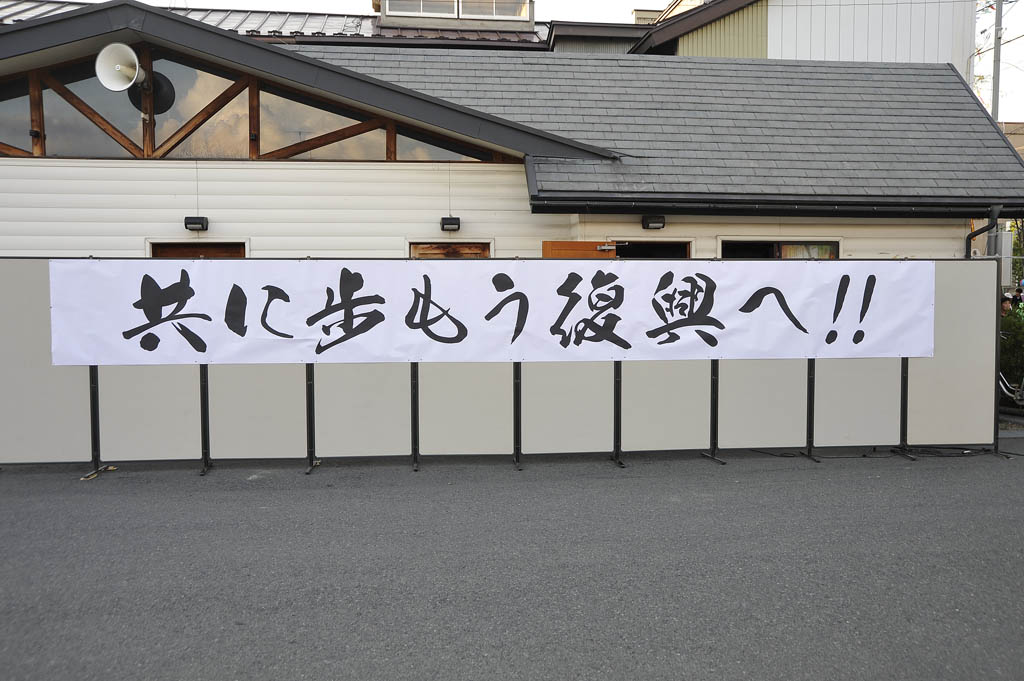 共に歩もう復興へ!!